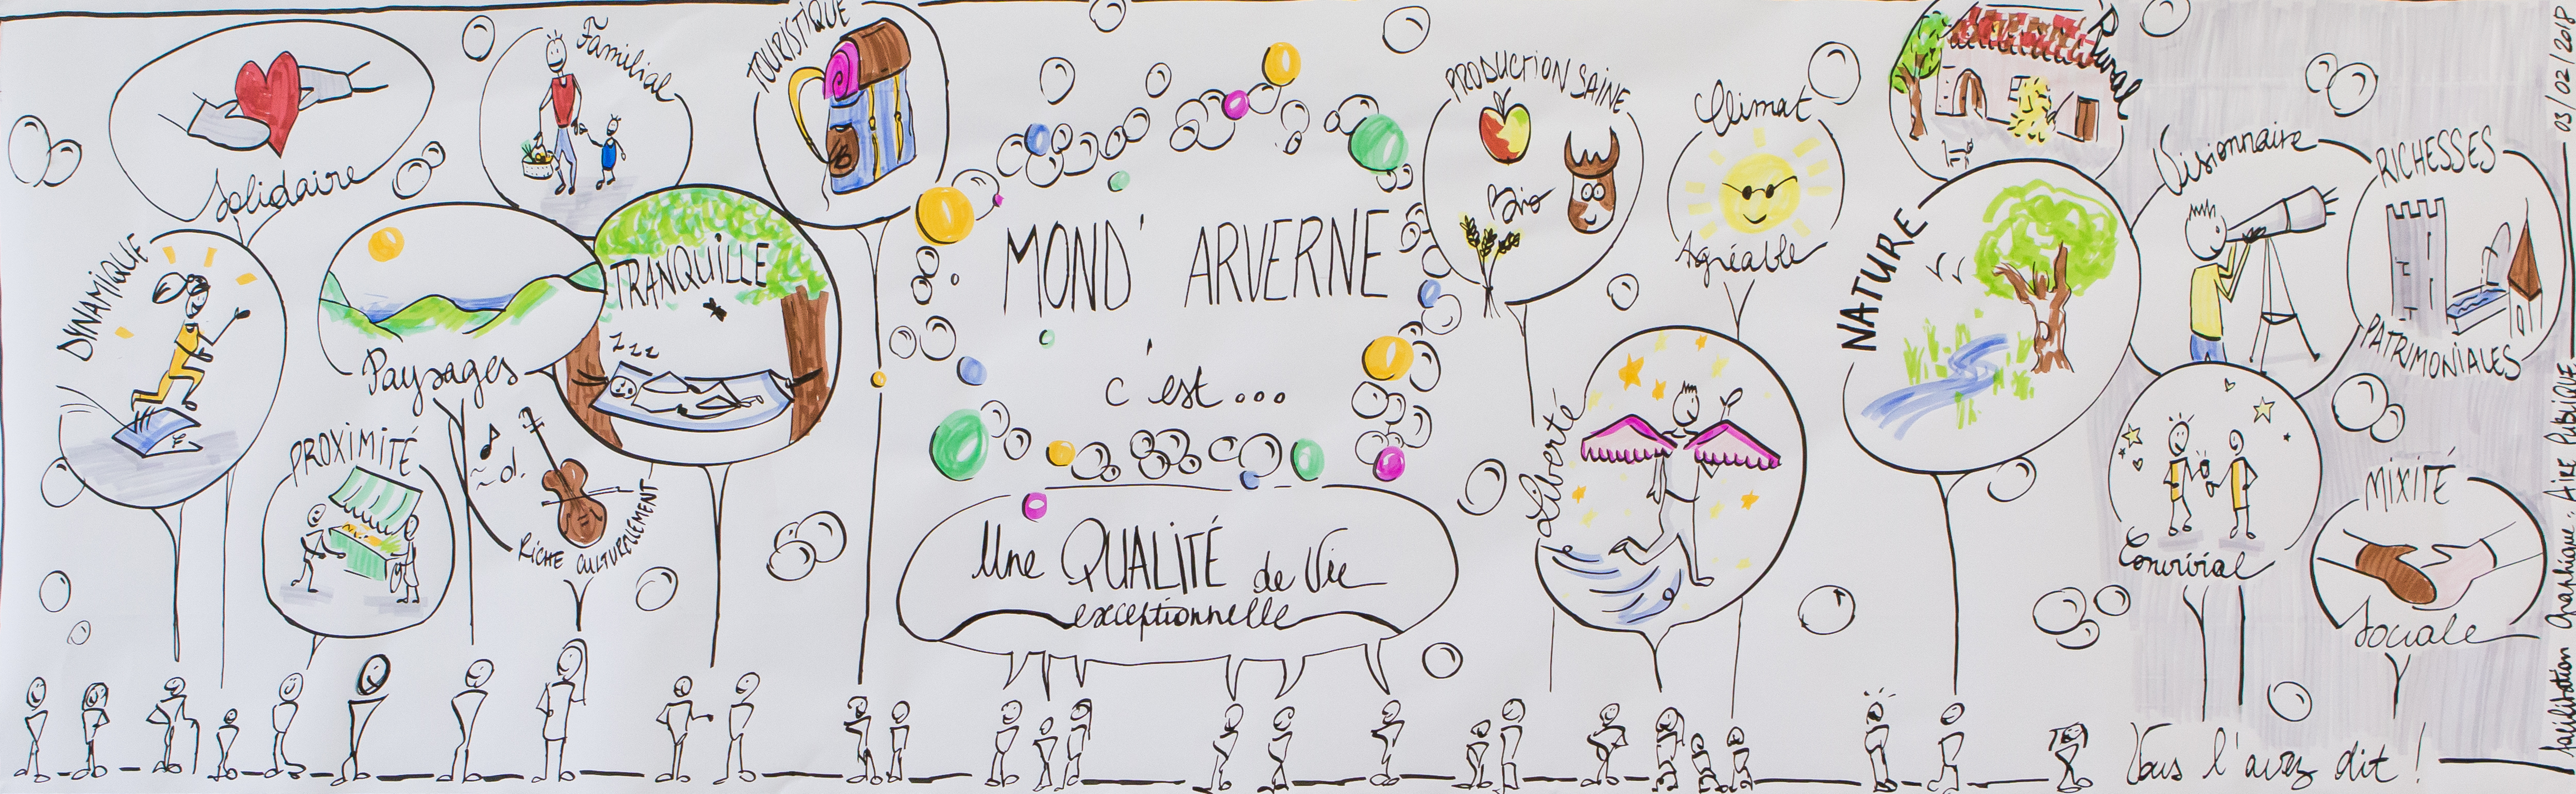 Solidaire
Familial
TOURISTIQUE
DYNAMIQUE
Paysages
TRANQUILLE
Zzz
PROXIMITÉ
RICHE CULTURELLEMENT
MOND' ARVERNE
c'est...
Une QUALITÉ de Vie
exceptionnelle
PRODUCTION SAINE
Bio
Climat
Agréable
Rural
NATURE
Liberté
Visionnaire
RICHESSES
PATRIMONIALES
Convivial
MIXITÉ
Sociale
Vous l'avez dit !
Facilitation Graphique. AIRE PUBLIQUE 03/02/2018